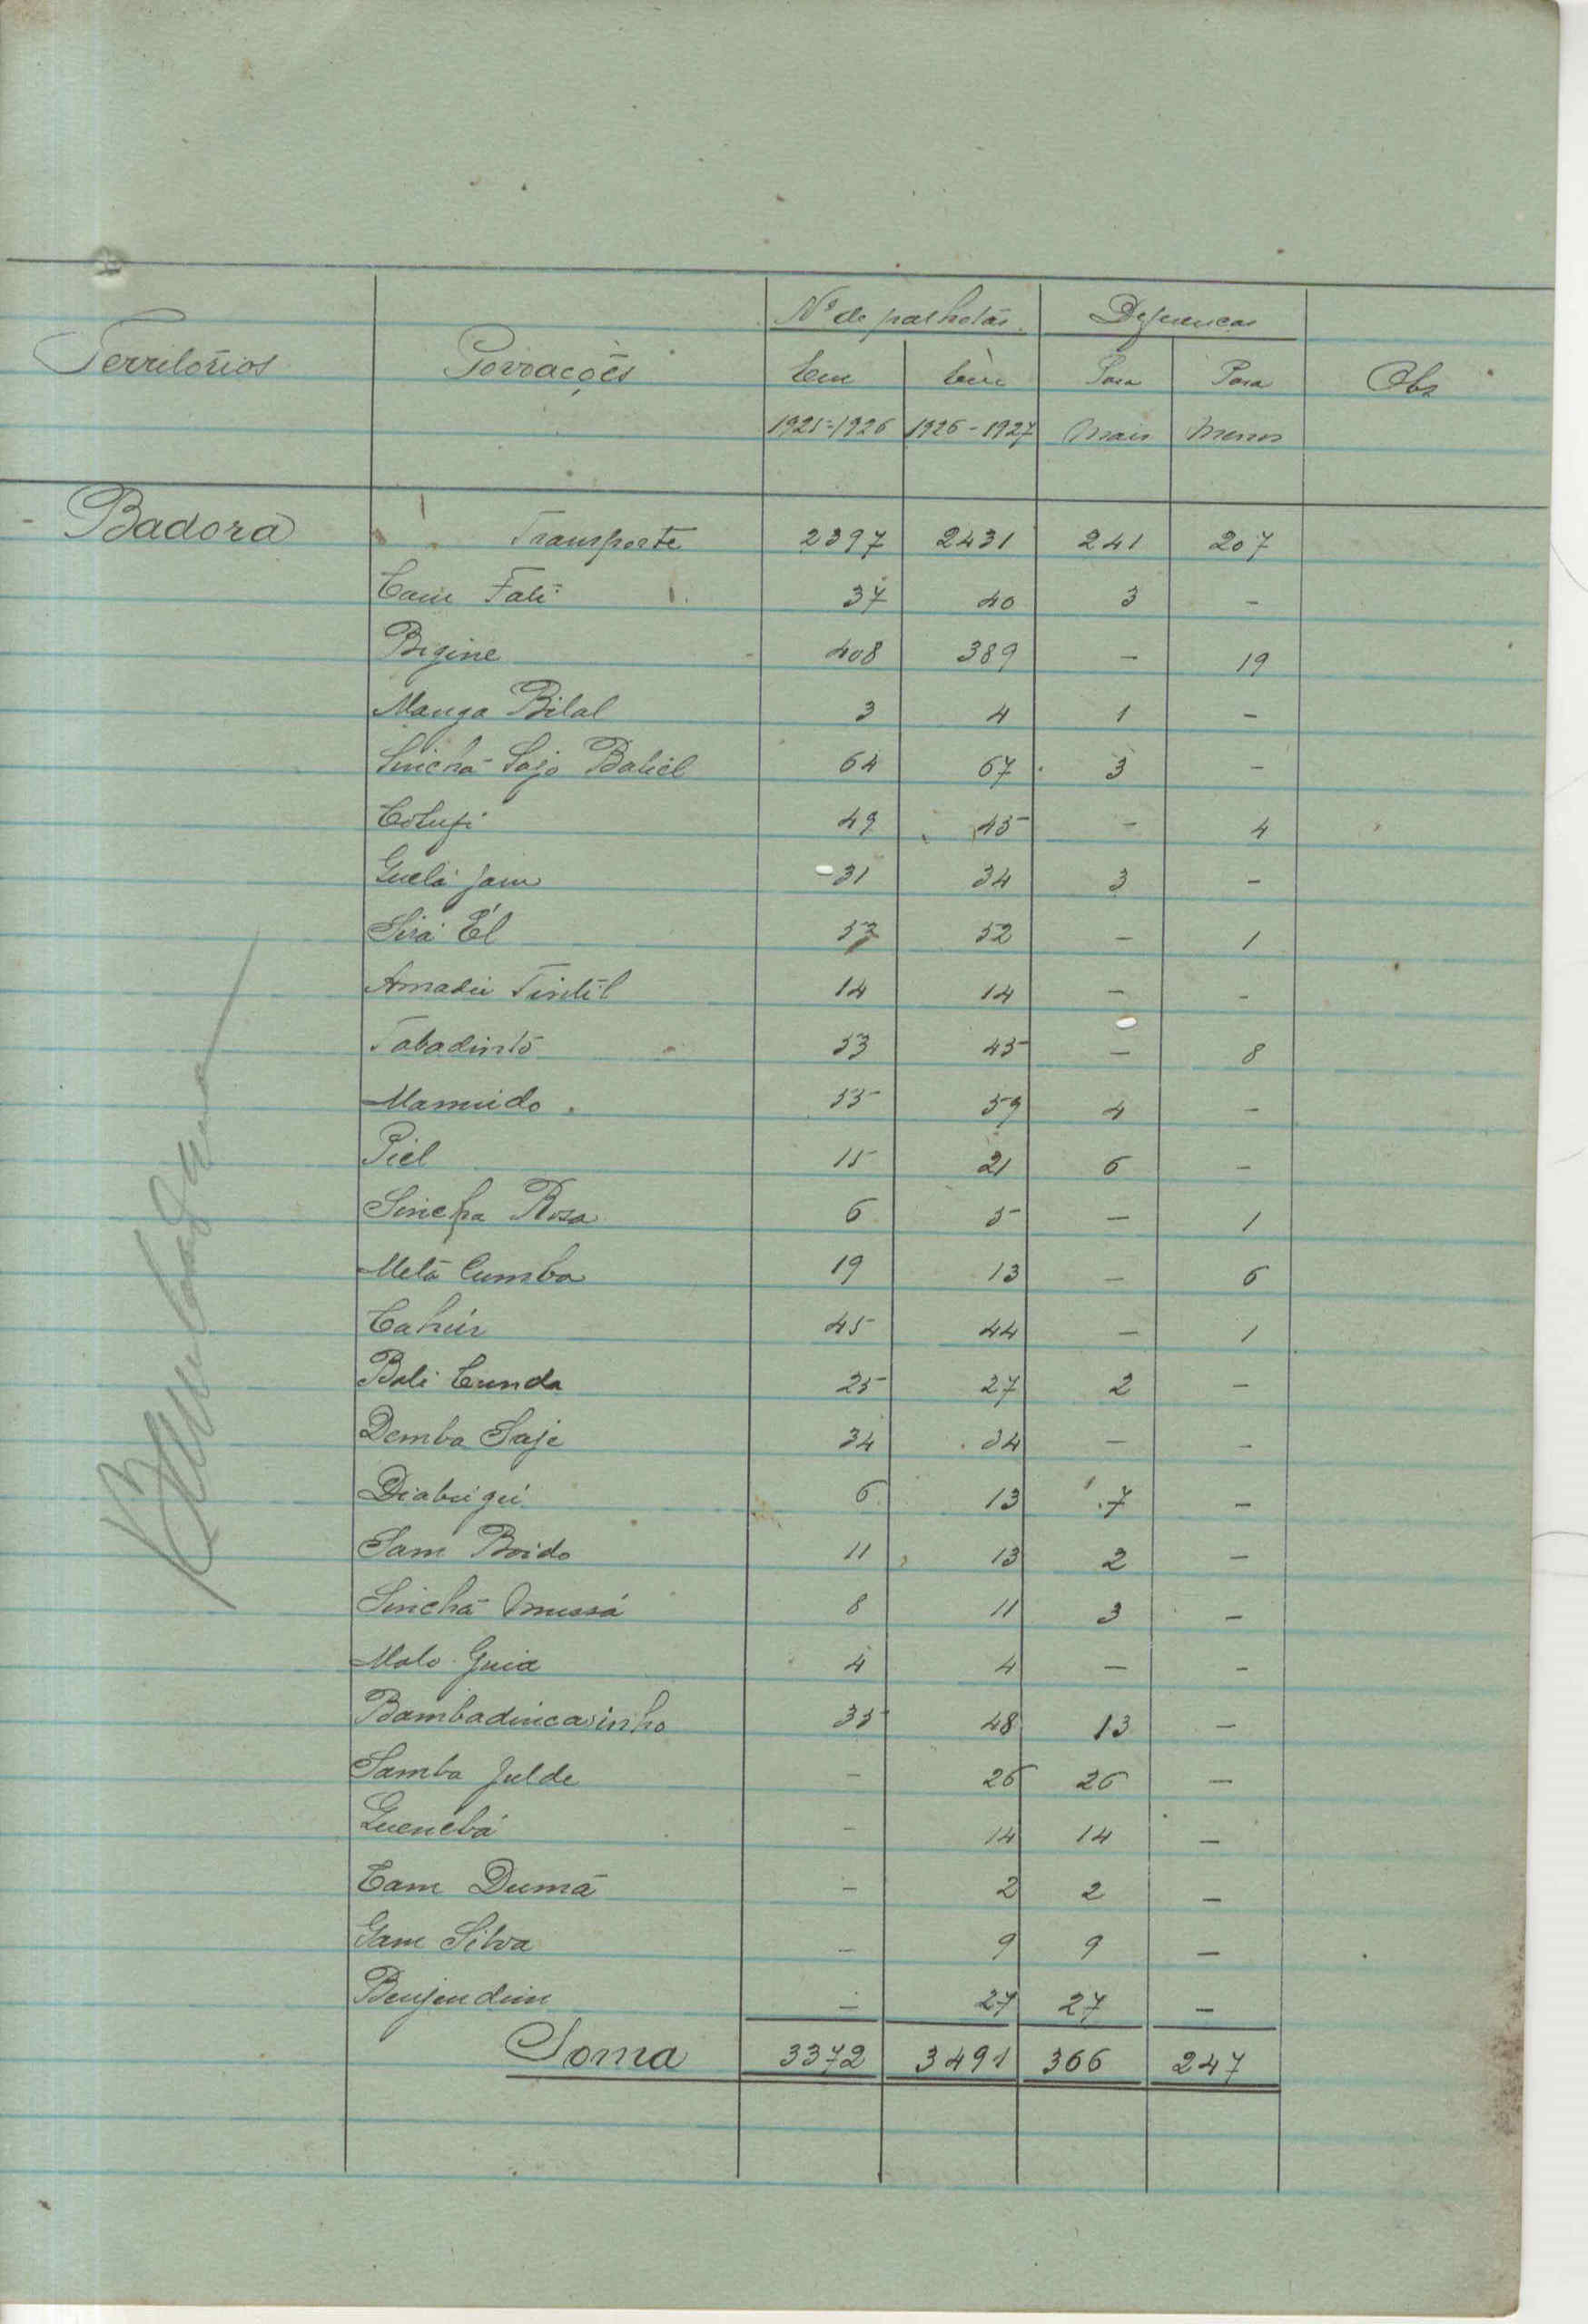 Nº de palhotas Diferenças
Territórios Povoações Em Em Para Para Obs
1925-1926 1926-1927 Mais Menos
Badora Transporte 2397 2431 241 207
Cam Fati 37 40 3 -
Bigine 408 389 - 19
Manga Bilal 3 4 1 -
Sinchã Sajo Baliél 64 67 3 -
Colufi 49 45 - 4
Guelá Jam 31 34 3 -
Sirá Él 53 52 - 1
Amadú Tintil 14 14 - -
Tabadintó 53 45 - 8
Mamúdo 55 59 4 -
Piel 15 21 6 -
Sincha Rosa 6 5 - 1
Metá Cumba 19 13 - 6
Cahúr 45 44 - 1
Bali Cunda 25 27 2 -
Demba Saje 34 34 - -
Diabúgú 6 13 7 -
Sam Boido 11 13 2 -
Sinchã Mussá 8 11 3 -
Malo Guia 4 4 - -
Bambadincasinho 35 48 13 -
Samba Julde - 26 26 -
Guenebá - 14 14 -
Cam Dumã - 2 2 -
Gam Silva - 9 9 -
Benjendim - 27 27 -
Soma 3372 3491 366 247